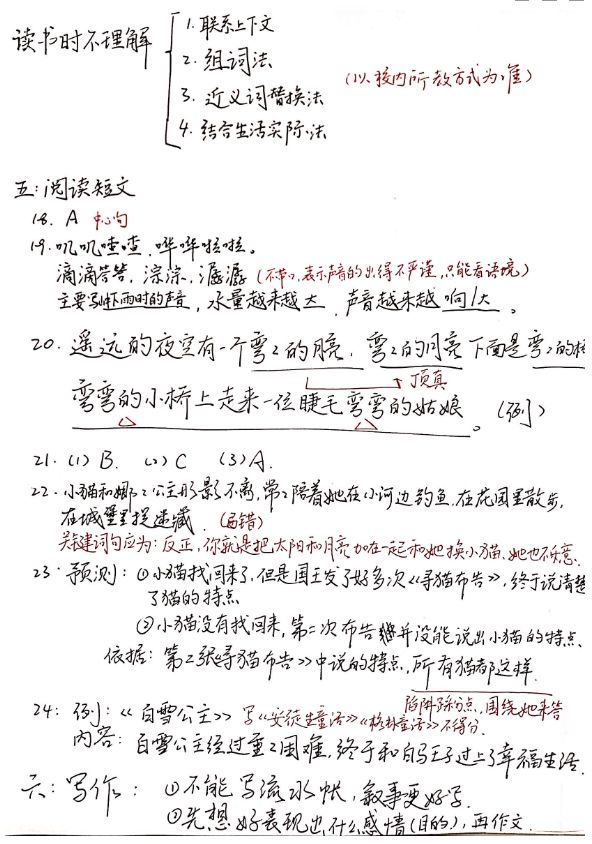 读书时不理解
1. 联系上下文
2. 组词法
3. 近义词替换法
4. 结合生活实际法
(以校内所教方式为准)
五:阅读短文
18. A 中心句
19. 叽叽喳喳,哗哗啦啦。
滴滴答答,淙淙,潺潺 表示声音的 得不严谨,只能看语境)
主要写 下雨时的声音,水量越来越大,声音越来越响/大。
20. 遥远的夜空有一个弯2的月亮,弯2的月亮下面是弯2的
顶真
弯弯的小桥上走来一位睫毛弯弯的姑娘。(例)
21. (1) B. (2) C (3) A.
22. 小猫和娜2公主形影不离,常2陪着她在小河边钓鱼,在花园里散步,
在城堡里捉迷藏.(易错)
关键词句应为:反正,你就是把太阳和月亮加在一起和她换小猫,她也不愿意.
23. 预测:①小猫找回来了,但是国王发了好多次《寻猫布告》,终于说清楚
了猫的特点
②小猫没有找回来,第二次布告 并没能说出小猫的特点.
依据:第2张《寻猫布告》中说的特点,所有猫都这样.
陷阱踩分点,围绕她来答
24: 例:《白雪公主》写《安徒生童话》《格林童话》不得分.
内容:白雪公主经过重2困难,终于和白马王子过上了幸福生活.
六:写作:①不能写流水帐,叙事更好写.
②先想好表现出什么感情(目的),再作文.